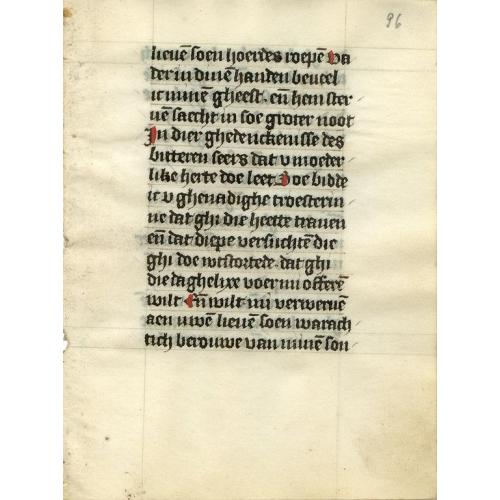 96
lieuē soen hoerdes roepē va
der in dinē handen beueel
ic minē gheest · eñ hem ster
uē saecht in soe groter noot
In dier ghedenckenisse des
bitteren seers dat v moeder
like herte doe leet Doe bidde
ic v ghenadighe troesterin
ne dat ghi die heette tranen
eñ dat diepe versuchtē die
ghi doe wtstortede · dat ghi
die daghelixe voer mi offerē
wilt Eñ wilt mi verweruē
aen uwē lieuē soen warach
tich berouwe van minē son